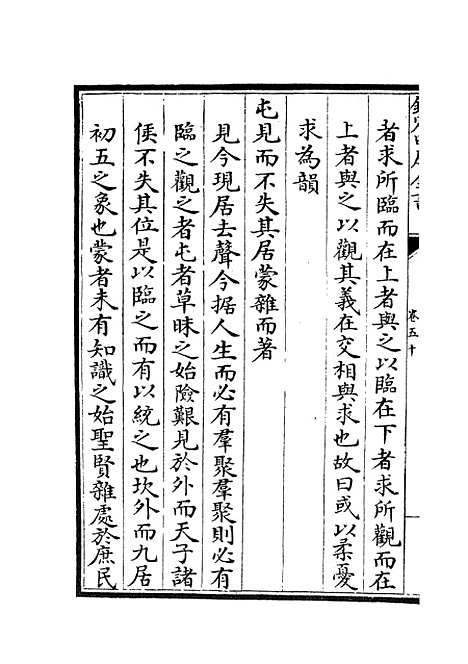 欽定四庫全書
卷五十
者求所臨而在上者與之以臨在下者求所觀而在
上者與之以觀其義在交相與求也故曰或以柔憂
求為韻
屯見而不失其居蒙雜而著
見今現居去聲今据人生而必有羣聚羣聚則必有
臨之觀之者屯者草昧之始險艱見於外而天子諸
侯不失其位是以臨之而有以統之也坎外而九居
初五之象也蒙者未有知識之始聖賢雜處於庶民